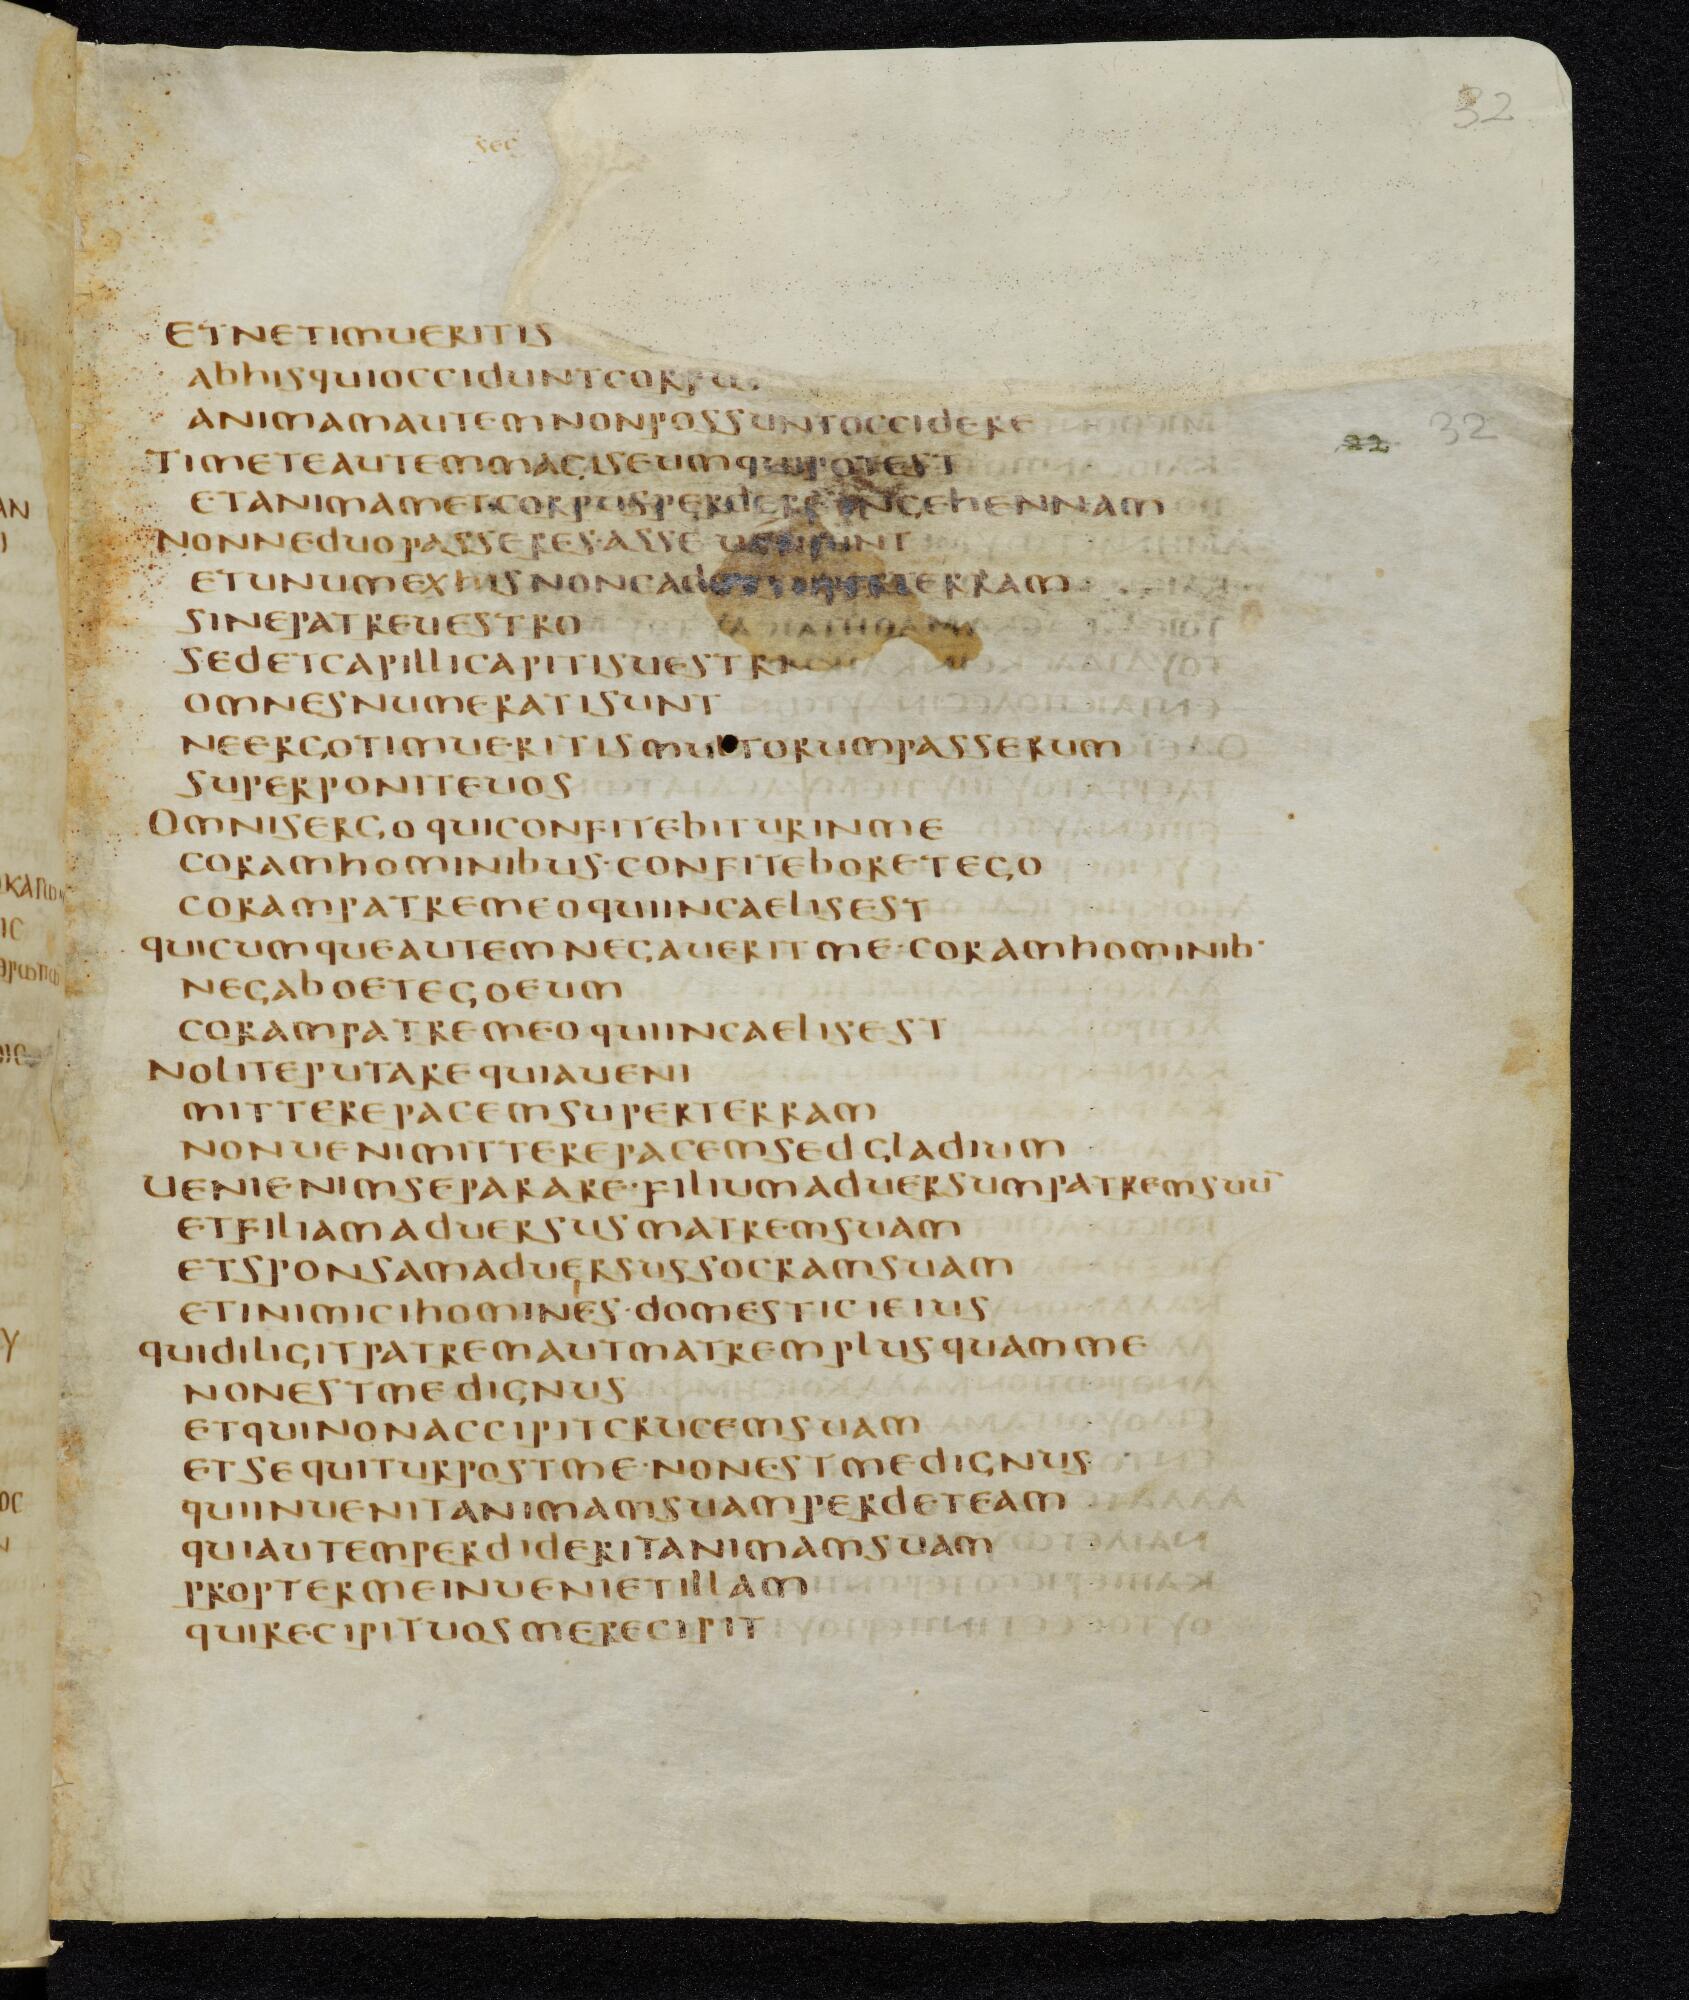 32
sec
ETNETIMUERITIS
ABHISQUIOCCIDUNTCORPUS
ANIMAMAUTEMNONPOSSUNTOCCIDERE
32
22
TIMETEAUTEMMAGISEUMQUIPOTEST
ETANIMAMETCORPUSPERDEREINGEHENNAM
NONNEDUOPASSERES·ASSE UENIUNT
ETUNUMEXHISNONCADET SUPERTERRAM
SINEPATREUESTRO
SEDETCAPILLICAPITISUESTRI
OMNESNUMERATISUNT
NEERGOTIMUERITISMULTORUMPASSERUM
SUPERPONITEUOS
OMNISERGOQUICONFITEBITURINME
CORAMHOMINIBUS·CONFITEBORETEGO
CORAMPATREMEOQUIINCAELISEST
QUICUMQUEAUTEMNEGAUERITME·CORAMHOMINIB·
NEGABOETEGOEUM
CORAMPATREMEOQUIINCAELISEST
NOLITEPUTAREQUIAUENI
MITTEREPACEMSUPERTERRAM
NONUENIMITTEREPACEMSEDGLADIUM
UENIENIMSEPARARE·FILIUMADUERSUMPATREMSUŪ
ETFILIAMADUERSUSMATREMSUAM
ETSPONSAMADUERSUSSOCRAMSUAM
ETINIMICIHOMINES·DOMESTICIEIUS
QUIDILIGITPATREMAUTMATREMPLUSQUAMME
NONESTMEDIGNUS
ETQUINONACCIPITCRUCEMSUAM
ETSEQUITURPOSTME·NONESTMEDIGNUS
QUIINUENITANIMAMSUAMPERDETEAM
QUIAUTEMPERDIDERITANIMAMSUAM
PROPTERMEINUENIETILLAM
QUIRECIPITUOSMERECIPIT